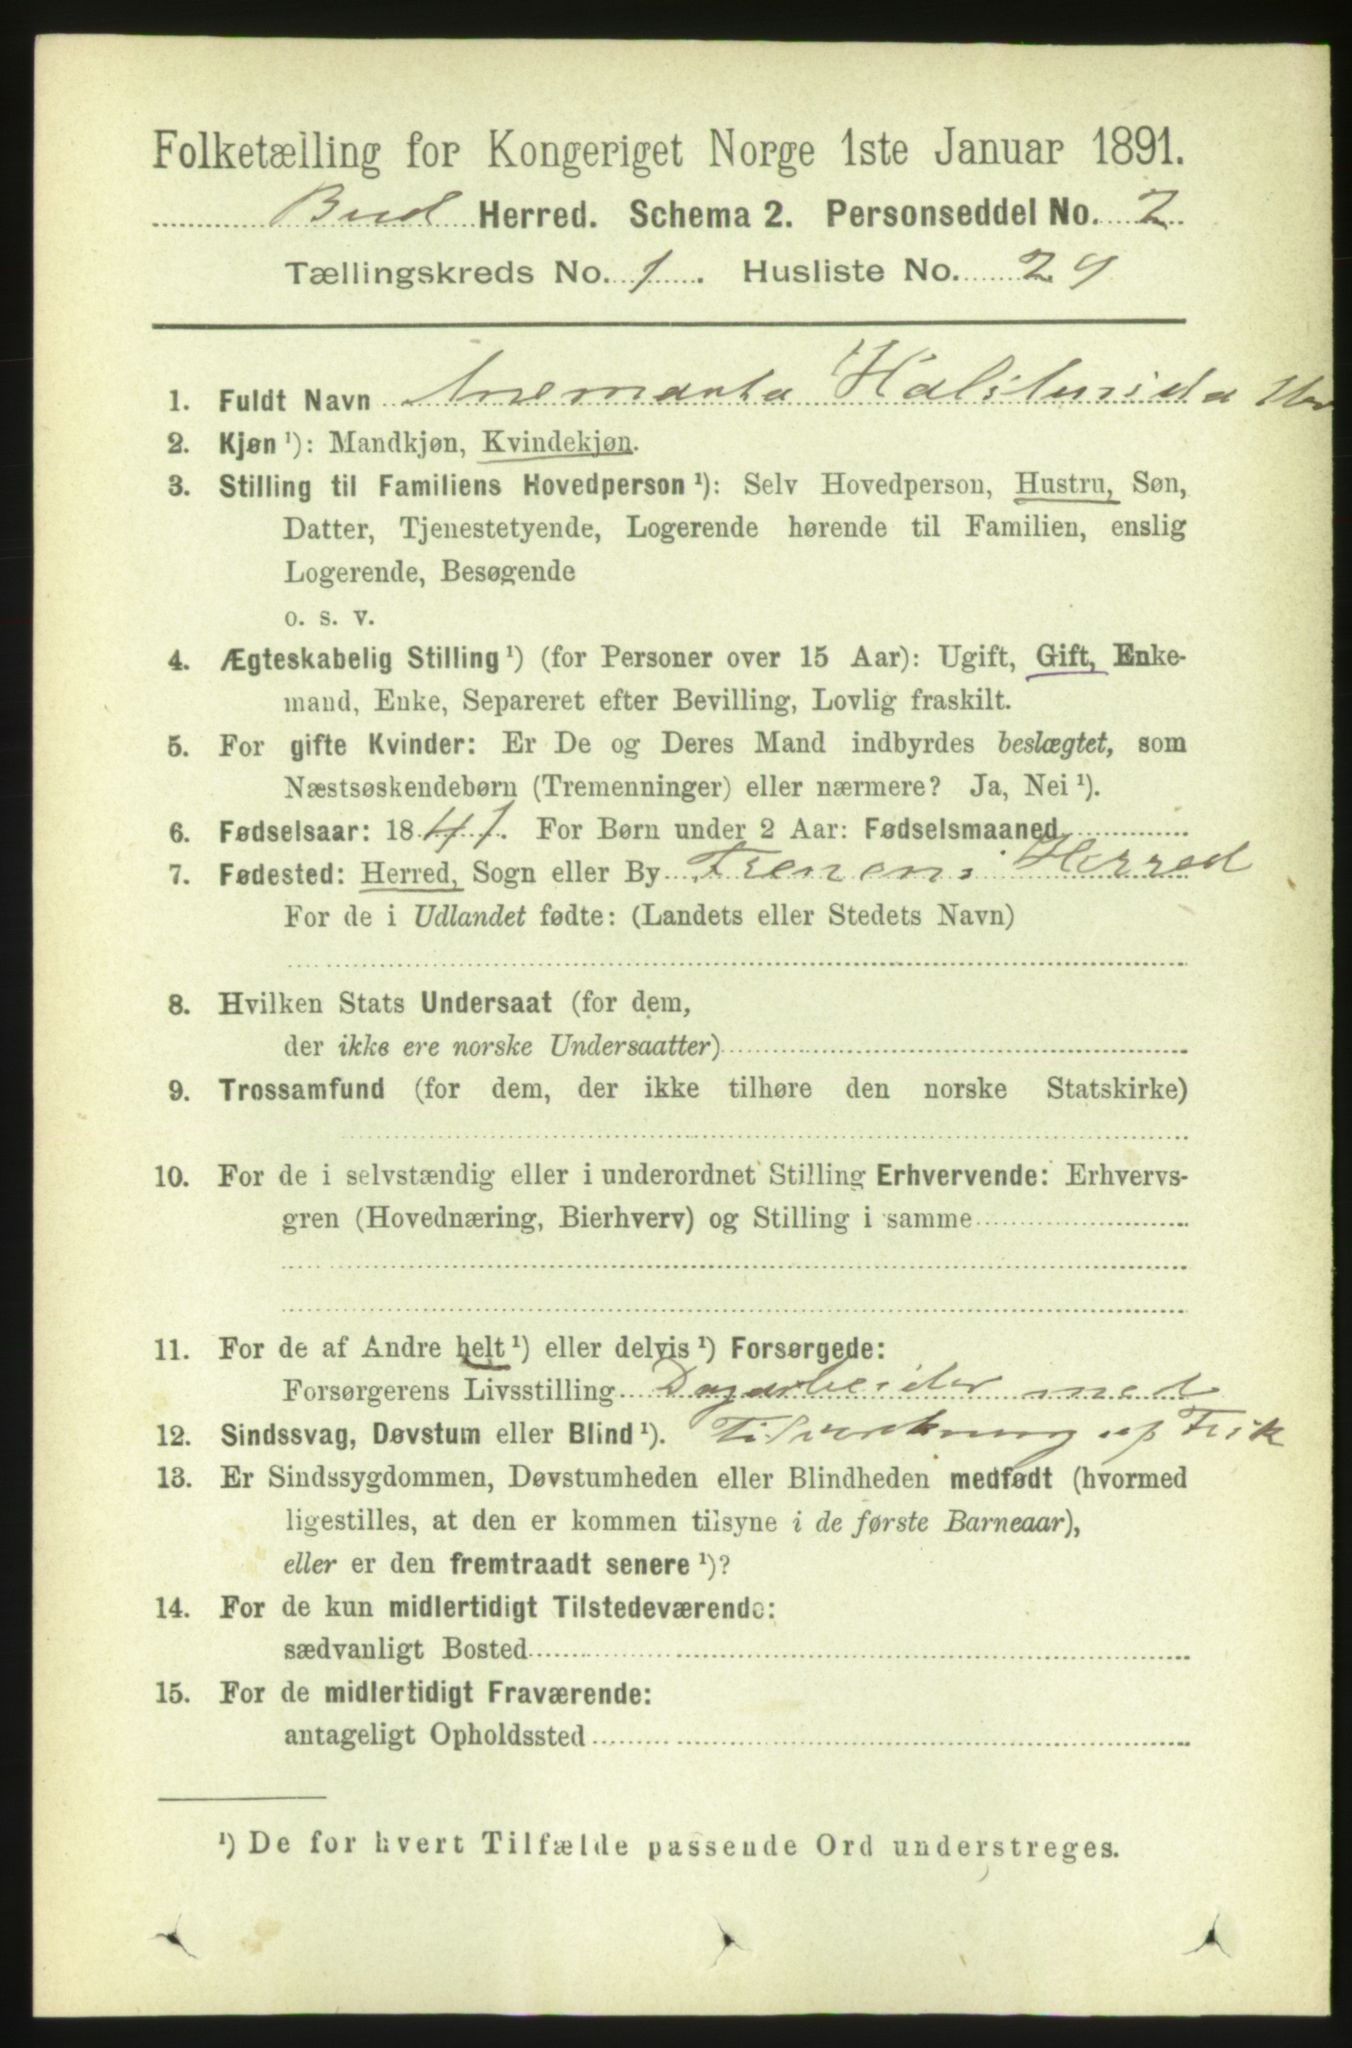 Folketælling for Kongeriget Norge 1ste Januar 1891.
Bud Herred. Schema 2. Personseddel No. 2
Tællingskreds No. 1. Husliste No. 29
1. Fuldt Navn Anemarta
2. Kjøn ¹): Mandkjøn, Kvindekjøn.
3. Stilling til Familiens Hovedperson ¹): Selv Hovedperson, Hustru, Søn,
Datter, Tjenestetyende, Logerende hørende til Familien, enslig
Logerende, Besøgende
o. s. v.
4. Ægteskabelig Stilling ¹) (for Personer over 15 Aar): Ugift, Gift, Enke-
mand, Enke, Separeret efter Bevilling, Lovlig fraskilt.
5. For gifte Kvinder: Er De og Deres Mand indbyrdes beslægtet, som
Næstsøskendebørn (Tremenninger) eller nærmere? Ja, Nei ¹).
6. Fødselsaar: 1841. For Børn under 2 Aar: Fødselsmaaned
7. Fødested: Herred, Sogn eller By Frenens Herred
For de i Udlandet fødte: (Landets eller Stedets Navn)
8. Hvilken Stats Undersaat (for dem,
der ikke ere norske Undersaatter)
9. Trossamfund (for dem, der ikke tilhøre den norske Statskirke)
10. For de i selvstændig eller i underordnet Stilling Erhvervende: Erhvervs-
gren (Hovednæring, Bierhverv) og Stilling i samme
11. For de af Andre helt ¹) eller delvis ¹) Forsørgede:
Forsørgerens Livsstilling Dagarbeider med
12. Sindssvag, Døvstum eller Blind ¹). Tilvirkning af Fisk
13. Er Sindssygdommen, Døvstumheden eller Blindheden medfødt (hvormed
ligestilles, at den er kommen tilsyne i de første Barneaar),
eller er den fremtraadt senere ¹)?
14. For de kun midlertidigt Tilstedeværende:
sædvanligt Bosted
15. For de midlertidigt Fraværende:
antageligt Opholdssted
¹) De for hvert Tilfælde passende Ord understreges.